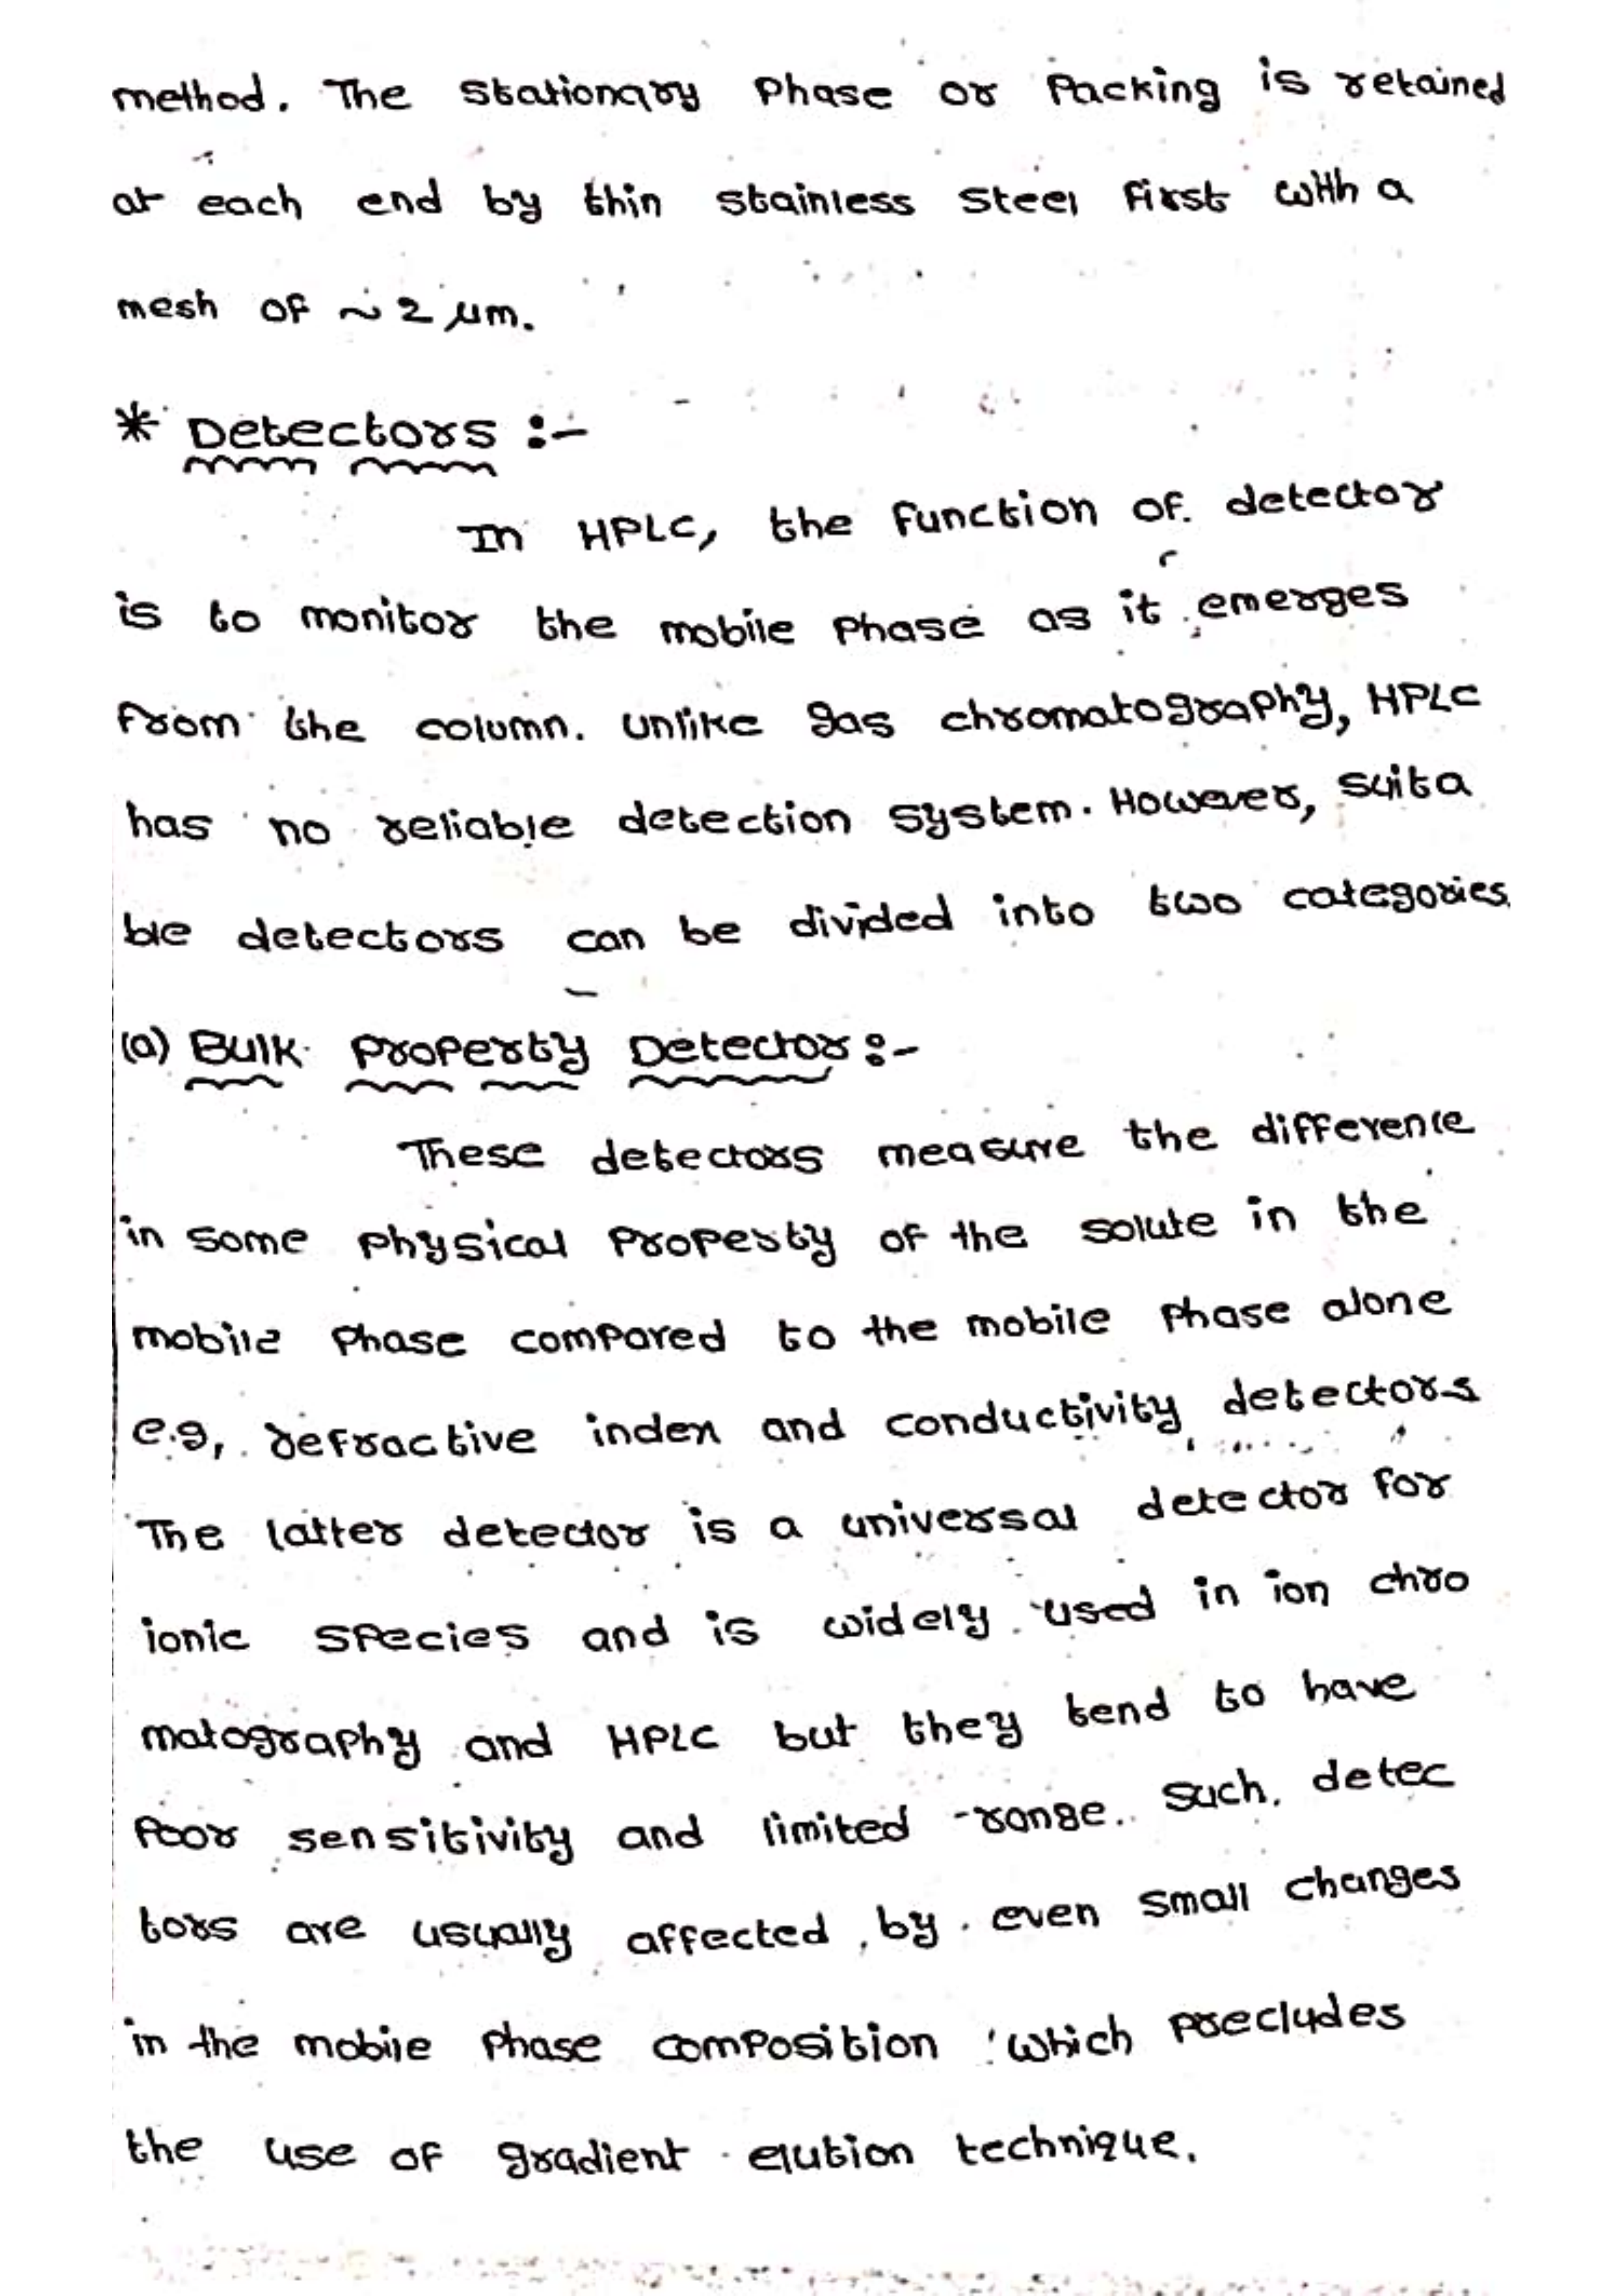 method. The stationary Phase or Packing is retained
at each end by thin stainless steel first with a
mesh of ~ 2 µm.
* Detectors :-
In HPLC, the function of detector
is to monitor the mobile Phase as it emerges
from the column. Unlike gas chromatography, HPLC
has no reliable detection system. However, suita
ble detectors can be divided into two categories.
(a) Bulk Property Detector :-
These detectors measure the difference
in some physical Property of the solute in the
mobile Phase compared to the mobile Phase alone
e.g, refractive index and conductivity detectors
The latter detector is a universal detector for
ionic species and is widely used in ion chro
matography and HPLC but they tend to have
Poor sensitivity and limited -range. Such detec
tors are usually affected by even small changes
in the mobile Phase composition which precludes
the use of gradient elution technique.